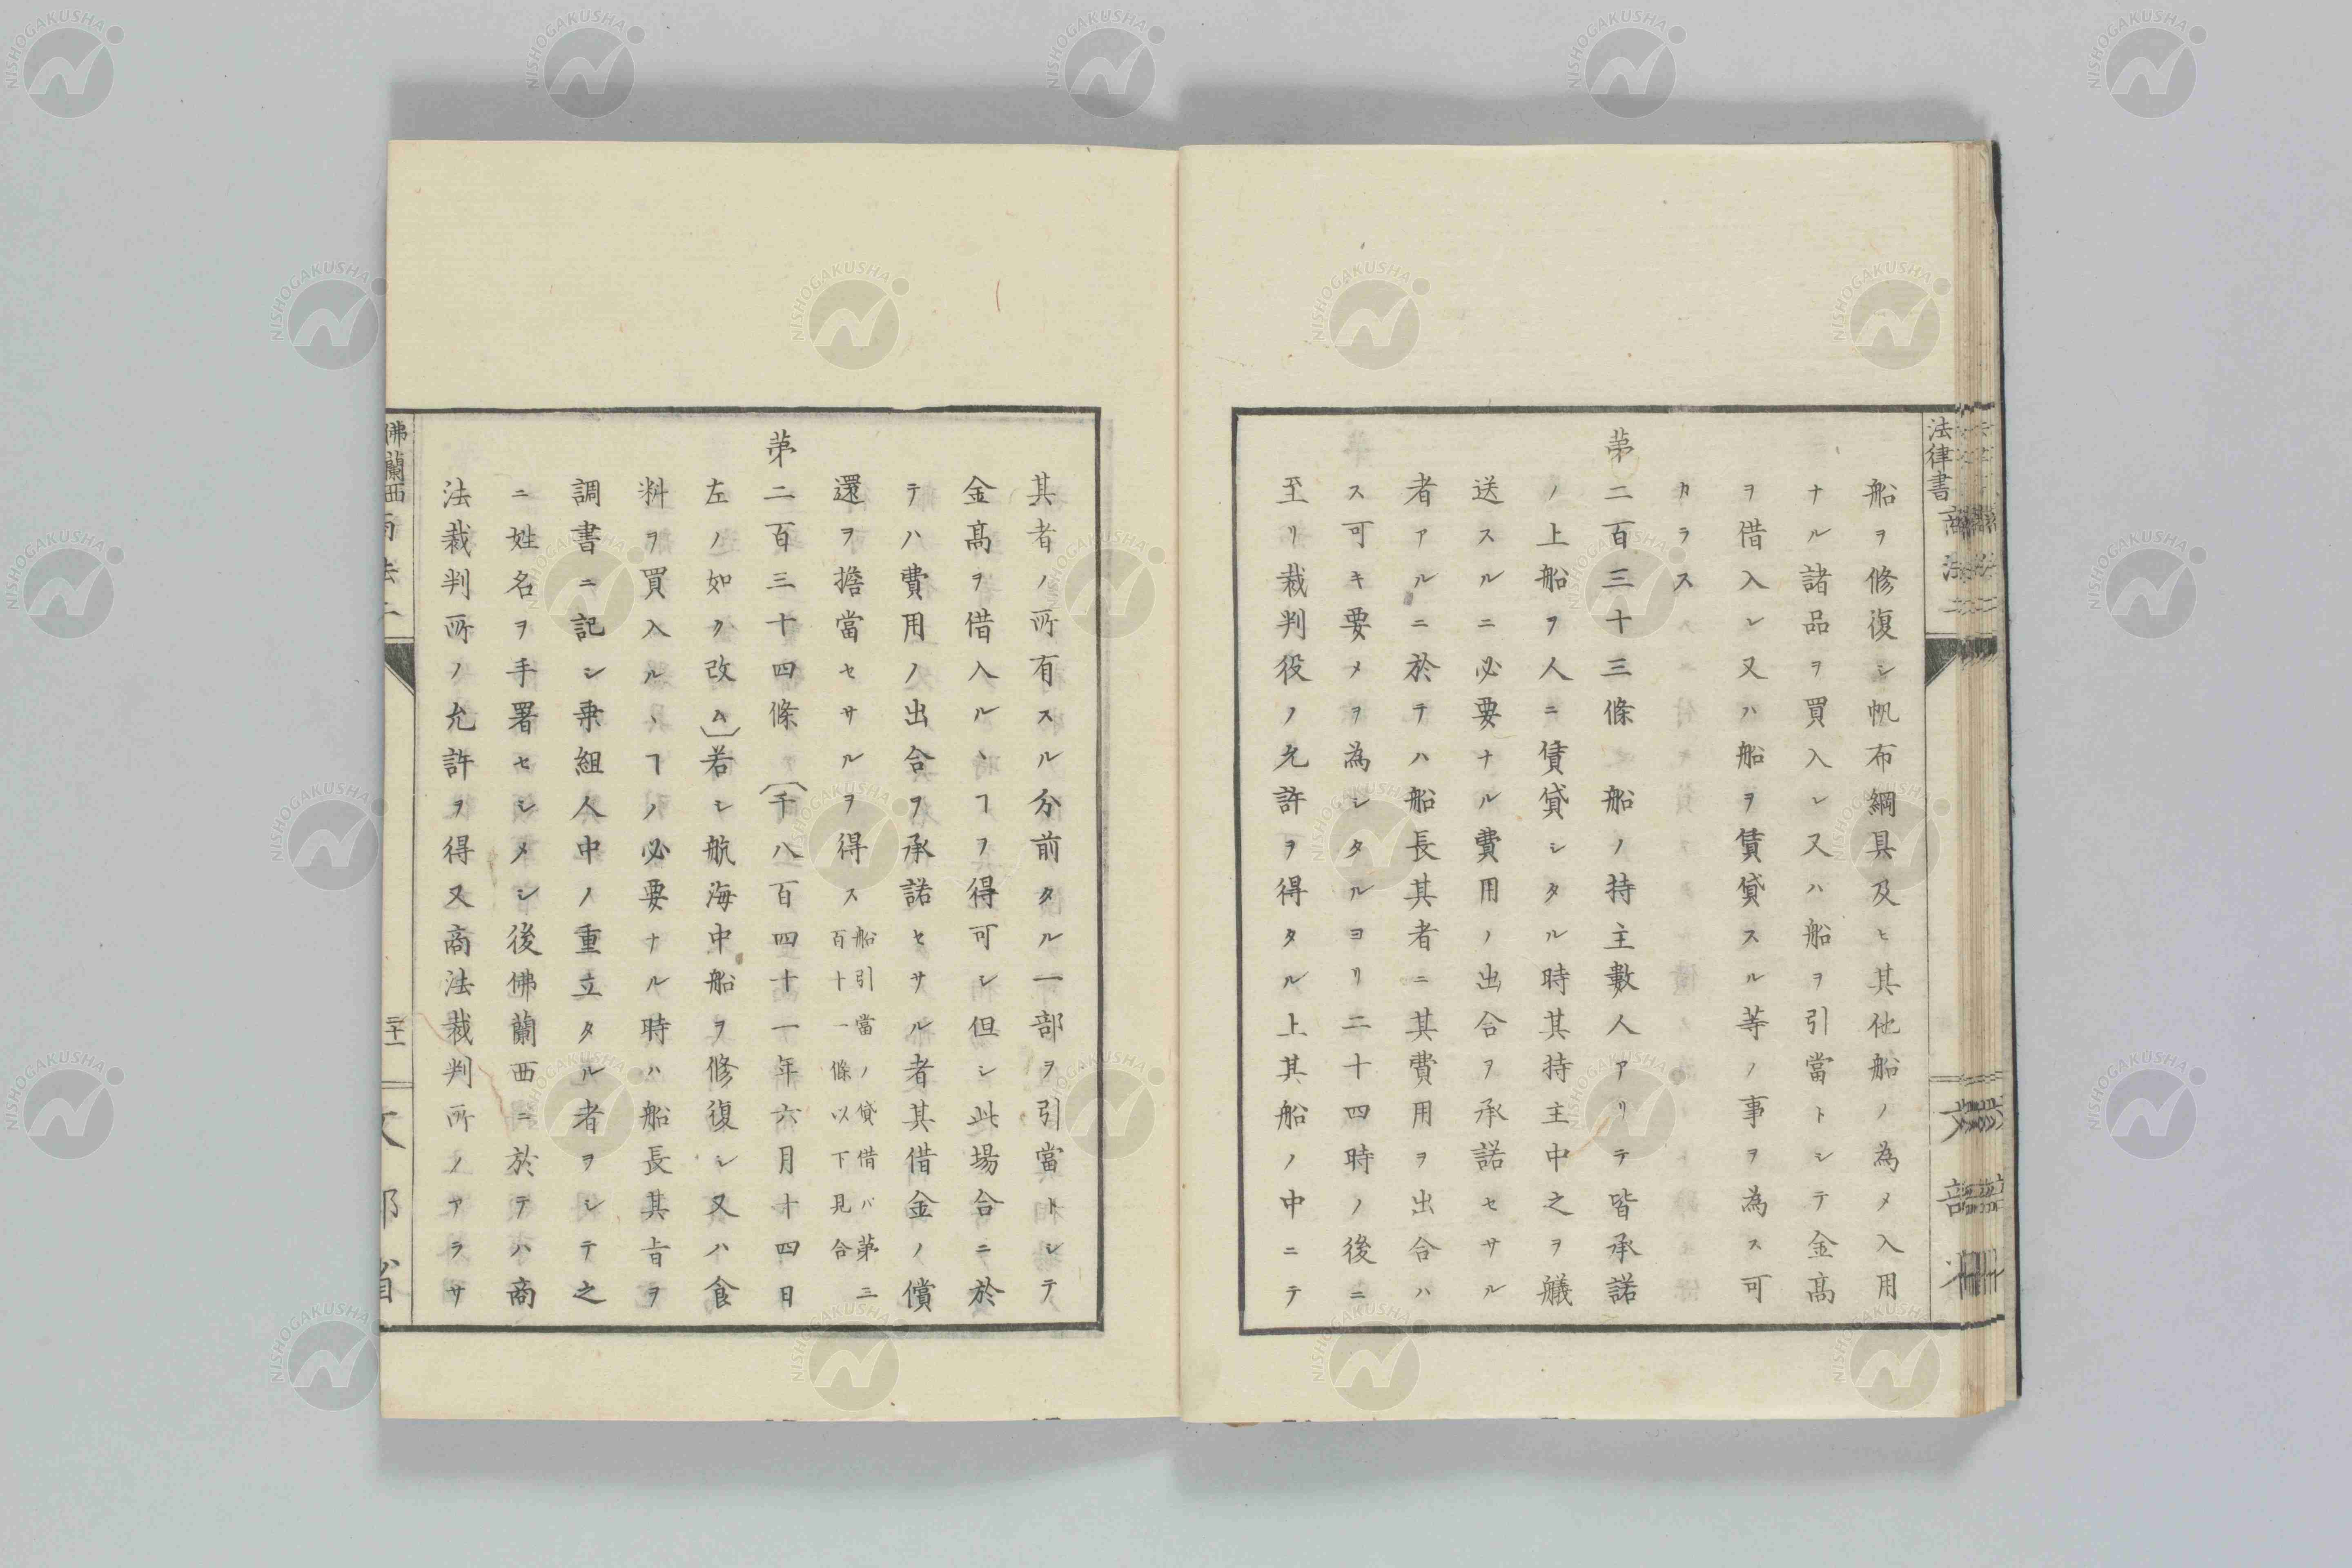 船ヲ修復シ帆布綱具及ヒ其他船ノ為メ入用
ナル諸品ヲ買入レ又ハ船ヲ引當トシテ金髙
ヲ借入レ又ハ船ヲ賃貸スル等ノ事ヲ為ス可
カラス
第二百三十三條 船ノ持主數人アリテ皆承諾
ノ上船ヲ人ニ賃貸シタル時其持主中之ヲ艤
送スルニ必要ナル費用ノ出合ヲ承諾セサル
者アルニ於テハ船長其者ニ其費用ヲ出合ハ
ス可キ要メヲ為シタルヨリ二十四時ノ後ニ
至リ裁判役ノ允許ヲ得タル上其船ノ中ニテ
其者ノ所有スル分前タル一部ヲ引當トシテ
金髙ヲ借入ルヽヿヲ得可シ但シ此場合ニ於
テハ費用ノ出合ヲ承諾セサル者其借金ノ償
還ヲ擔當セサルヲ得ス船引當ノ貸借ハ第三
百十一條以下見合
第二百三十四條 〔千八百四十一年六月十四日
左ノ如ク改ム〕若シ航海中船ヲ修復シ又ハ食
料ヲ買入ルヽヿノ必要ナル時ハ船長其旨ヲ
調書ニ記シ乗組人中ノ重立タル者ヲシテ之
ニ姓名ヲ手署セシメシ後佛蘭西ニ於テハ商
法裁判所ノ允許ヲ得又商法裁判所ノアラサ
法律書 商法
佛蘭西商法二
二十一
文部省
NISHOGAKUSHA